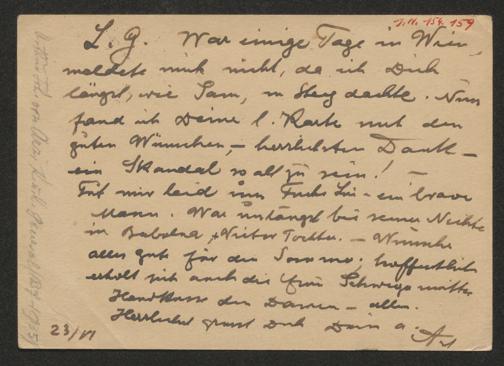 I.N. 154.159
L. G. War einige Tage in Wien,
meldete mich nicht, da ich Dich
längst, wie Sam, in Steg dachte. Nun
fand ich Deine l. Karte mit den
guten Wünschen, – herzlichsten Dank –
ein Skandal so alt zu sein! –
Tut mir leid um Fuchs – ein braver
Mann. War unlängst bei seiner Nichte
in Babolna – Wünsche
alles gute für den Sommer; hoffentlich
erholt sich auch die Frau Schwiegermutter
Handküsse den Damen – allen.
Herzlichst grüsst Dich Dein a.
23/VI